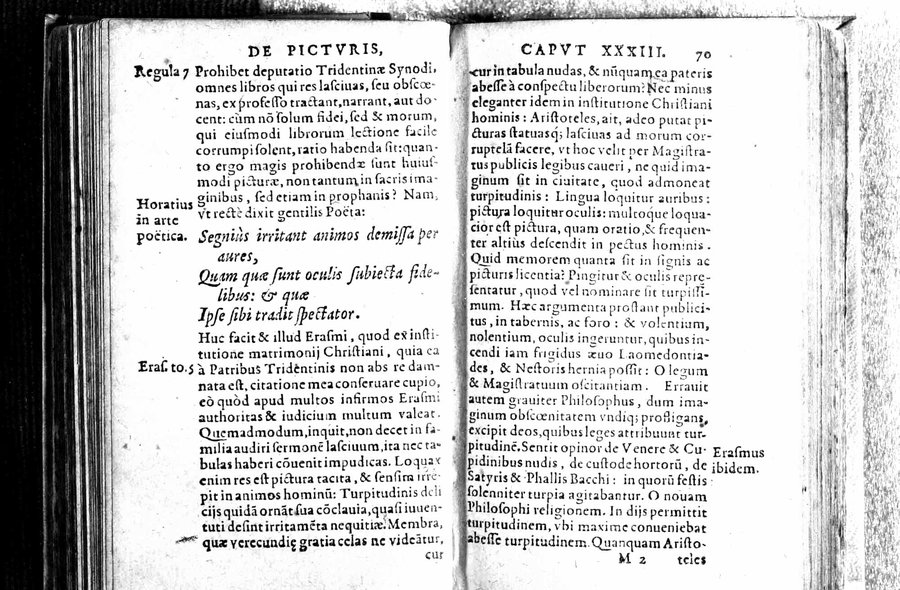 DE PICTVRIS,
Regula 7 Prohibet deputatio Tridentinæ Synodi,
omnes libros qui res lasciuas, seu obscœ-
nas, ex professo tractant, narrant, aut do-
cent: cùm nõ solum fidei, sed & morum,
qui eiusmodi librorum lectione facile
corrumpi solent, ratio habenda sit: quan-
to ergo magis prohibendæ sunt huius-
modi picturæ, non tantum in sacris ima-
ginibus, sed etiam in prophanis? Nam,
vt rectè dixit gentilis Poëta:
Horatius
in arte
poëtica.
Segniùs irritant animos demissa per
aures,
Quam quæ sunt oculis subiecta fide-
libus: & quæ
Ipse sibi tradit spectator.
Huc facit & illud Erasmi, quod ex insti-
tutione matrimonij Christiani, quia ea
Eras. to. 5 à Patribus Tridentinis non abs re dam-
nata est, citatione mea conseruare cupio,
eò quòd apud multos infirmos Erasmi
authoritas & iudicium multum valeat.
Quemadmodum, inquit, non decet in fa-
milia audiri sermonẽ lasciuum, ita nec ta-
bulas haberi cõuenit impudicas. Loquax
enim res est pictura tacita, & sensim irre-
pit in animos hominũ: Turpitudinis deli
cijs quidã ornãt sua cõclauia, quasi iuuen-
tuti desint irritamẽta nequitiæ. Membra,
quæ verecundię gratia celas ne videãtur,
cur
CAPVT XXXIII. 70
cur in tabula nudas, & nũquam ea pateris
abesse à conspectu liberorum? Nec minus
eleganter idem in institutione Christiani
hominis: Aristoteles, ait, adeo putat pi-
cturas statuasq; lasciuas ad morum cor-
ruptelã facere, vt hoc velit per Magistra-
tus publicis legibus caueri, ne quid ima-
ginum sit in ciuitate, quod admoneat
turpitudinis: Lingua loquitur auribus:
pictura loquitur oculis: multoque loqua-
cior est pictura, quam oratio, & frequen-
ter altiùs descendit in pectus hominis.
Quid memorem quanta sit in signis ac
picturis licentia? Pingitur & oculis repre-
sentatur, quod vel nominare sit turpissi-
mum. Hæc argumenta prostant publici-
tus, in tabernis, ac foro: & volentium,
nolentium, oculis ingeruntur, quibus in-
cendi iam frigidus æuo Laomedontia-
des, & Nestoris hernia possit: O legum
& Magistratuum oscitantiam. Errauit
autem grauiter Philosophus, dum ima-
ginum obscœnitatem vndiq; profligans,
excipit deos, quibus leges attribuunt tur-
pitudinẽ. Sentit opinor de Venere & Cu-
pidinibus nudis, de custode hortorũ, de
Satyris & Phallis Bacchi: in quorũ festis
solenniter turpia agitabantur. O nouam
Philosophi religionem. In dijs permittit
turpitudinem, vbi maxime conueniebat
abesse turpitudinem. Quanquam Aristo-
Erasmus
ibidem.
M 2 teles